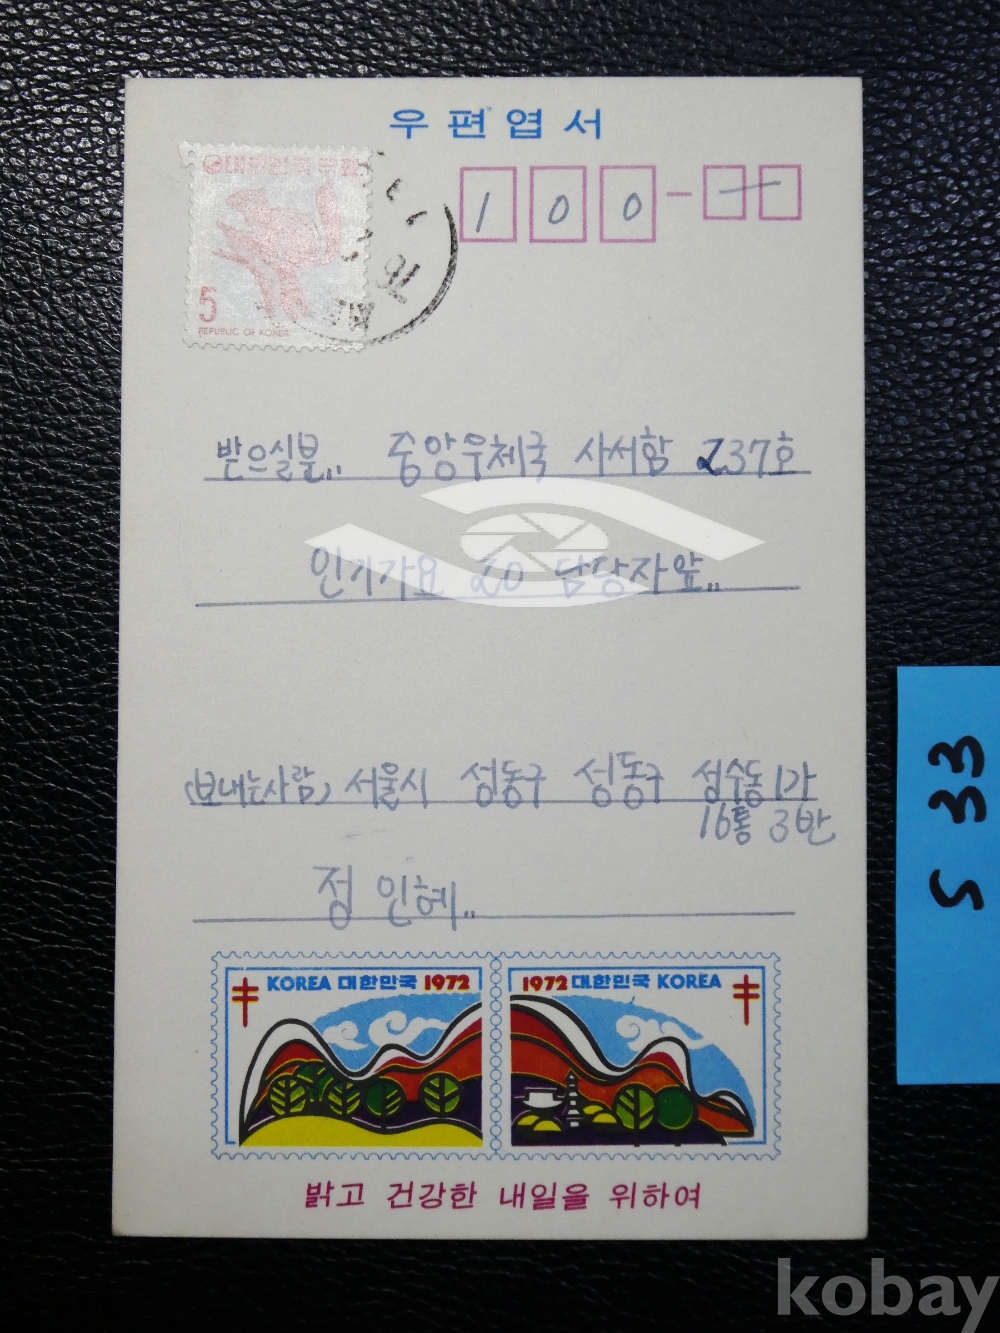 우편엽서
대한민국우표
5
REPUBLIC OF KOREA
1 0 0 -
받으실분.. 중앙우체국 사서함 237호
인기가요 20 담당자앞..
(보내는사람) 서울시 성동구 성동구 성수동1가
16통 3반
정 인혜..
KOREA 대한민국 1972
1972 대한민국 KOREA
밝고 건강한 내일을 위하여
S 33
kobay